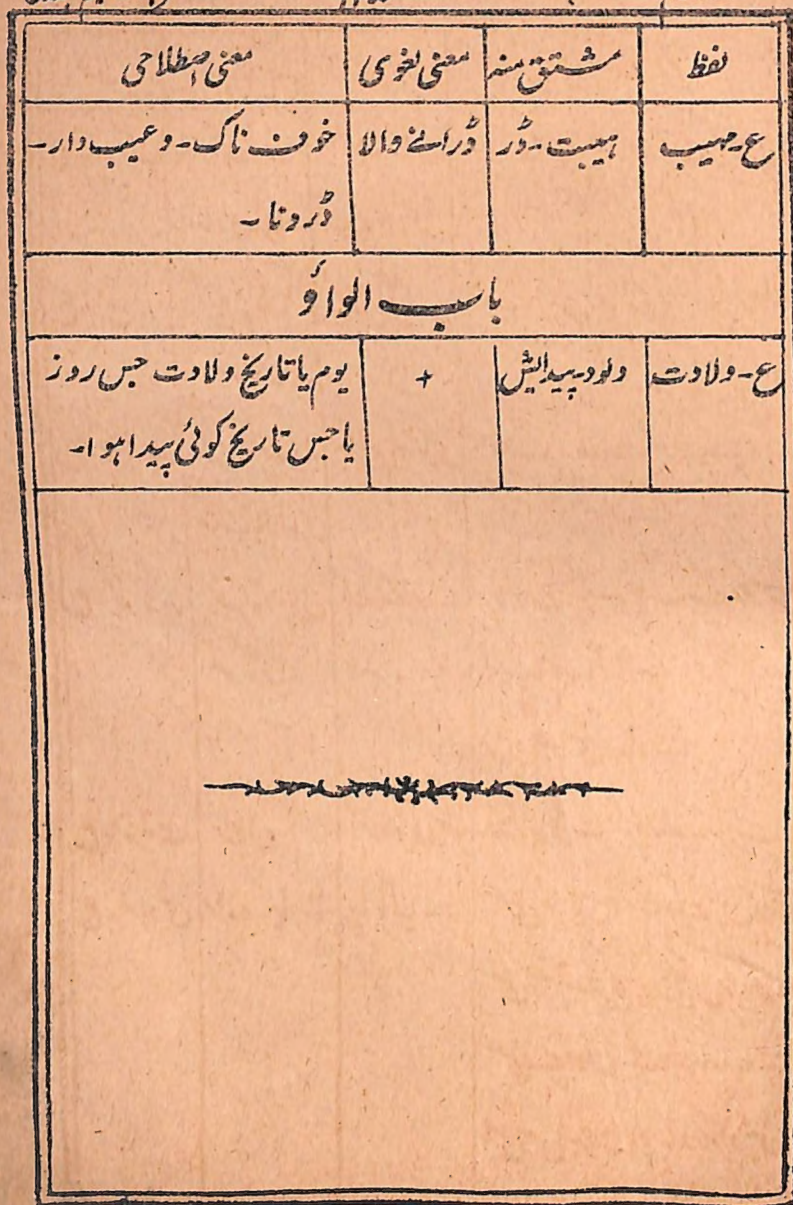 لفظ مشتق منہ معنی لغوی معنی اصطلاحی
ع۔ مہیب ہیبت۔ ڈر ڈرانے والا خوف ناک۔ وعیب دار۔
ڈرونا۔
باب الواؤ
ع۔ ولادت ولود۔ پیدایش + یوم یا تاریخ ولادت جس روز
یا جس تاریخ کوئی پیدا ہوا۔